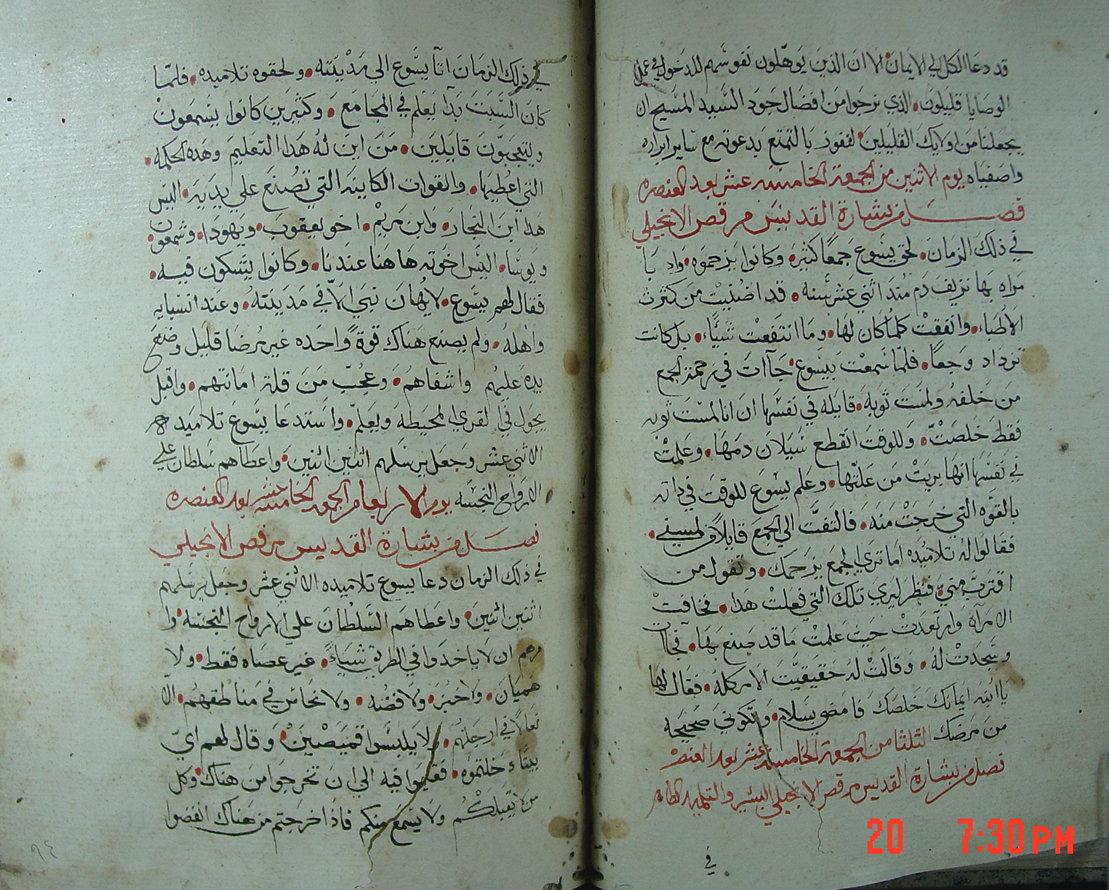 قد دعا الكل الي الايمان الا ان الذين يوهلون نفوسهم للدخول في عمل
الوصايا قليلون الذي نرجوا من افضال جود السيد المسيح ان
يجعلنا من اوليك القليلين لنفوز بالتمتع بدعوته مع ساير ابراره
واصفياه يوم الاثنين من الجمعة الخامسه عشر بعد العنصره
فصل من بشارة القديس مرقص الانجيلي
في ذلك الزمان لحق يسوع جمعًا كثير وكانوا يزحموه واذ با
مراه بها نزيف دم منذ اثني عشر سنه قد اضنيت من كثرت
الاطباء وانفقت كلما كان لها وما انتفعت شياء بل كانت
تزداد وجعًا فلما سمعت بيسوع جاات في زحمة الجمع
من خلفه ولمست ثوبه قايله في نفسها ان انا لمست ثوبه
فقط خلصت وللوقت انقطع سيلان دمها وعلمت
في نفسها انها بريت من علتها وعلم يسوع للوقت في ذاته
بالقوه التي خرجت منه فالتفت الي الجمع قايلا من لمسني
فقالوا له تلاميذه اما تري الجمع يزحمك وتقول من
اقترب مني فنظر ليري تلك التي فعلت هذا فخافت
الامراه وارتعدت حيث علمت ما قد صنع بها فجات
وسجدت له وقالت له حقيقيت الامر كله فقال لها
يا ابنه ايمانك خلصك فامضي بسلام وتكوني صحيحه
من مرضك الثلثا من الجمعة الخامسة عشر بعد العنصر
فصل من بشارة القديس مرقص الانجيلي البشير والتلميذ الطاهر
في
في ذلك الزمان اتا يسوع الي مدينته ولحقوه تلاميذه فلما
كان السبت بدا يعلم في المجامع وكثيرين كانوا يسمعون
ويتعجبون قايلين من اين له هذا التعليم وهذه الحكمه
التي اعطيها والقوات الكاينه التي تصنع علي يديه اليس
هذا ابن النجار وابن مريم اخو يعقوب ويهودا وشمعون
ويوسا اليس اخوته هاهنا عندنا وكانوا يشكون فيه
فقال لهم يسوع لا يهان نبي الا في مدينته وعند انسبايه
واهله ولم يصنع هناك قوةً واحده غير مرضا قليل وضع
يده عليهم واشفاهم وعجب من قلة امانتهم واقبل
يجول في القري المحيطه ويعلم واستدعا يسوع تلاميذه
الاثني عشر وجعل يرسلهم اثنين اثنين واعطاهم سلطان علي
الارواح النجسه يوم الاربعا من الجمعه الخامسه عشر بعد العنصره
فصل من بشارة القديس مرقص الانجيلي
في ذلك الزمان دعا يسوع تلاميذه الاثني عشر وجعل يرسلهم
اثنين اثنين واعطاهم السلطان علي الارواح النجسه وا
مرهم ان لا ياخذوا في الطريق شياءً غير عصاه فقط ولا
هميان ولا خبز ولا فضه ولا نحاس في مناطقهم الا
نعالا في ارجلهم ولا يلبسوا قميصين وقال لهم اي
بيتا دخلتموه فقيموا فيه الي ان تخرجوا من هناك وكل
من لا يقبلكم ولا يسمع منكم فاذا خرجتم من هناك انفضوا
٩٤
20 7:30 PM